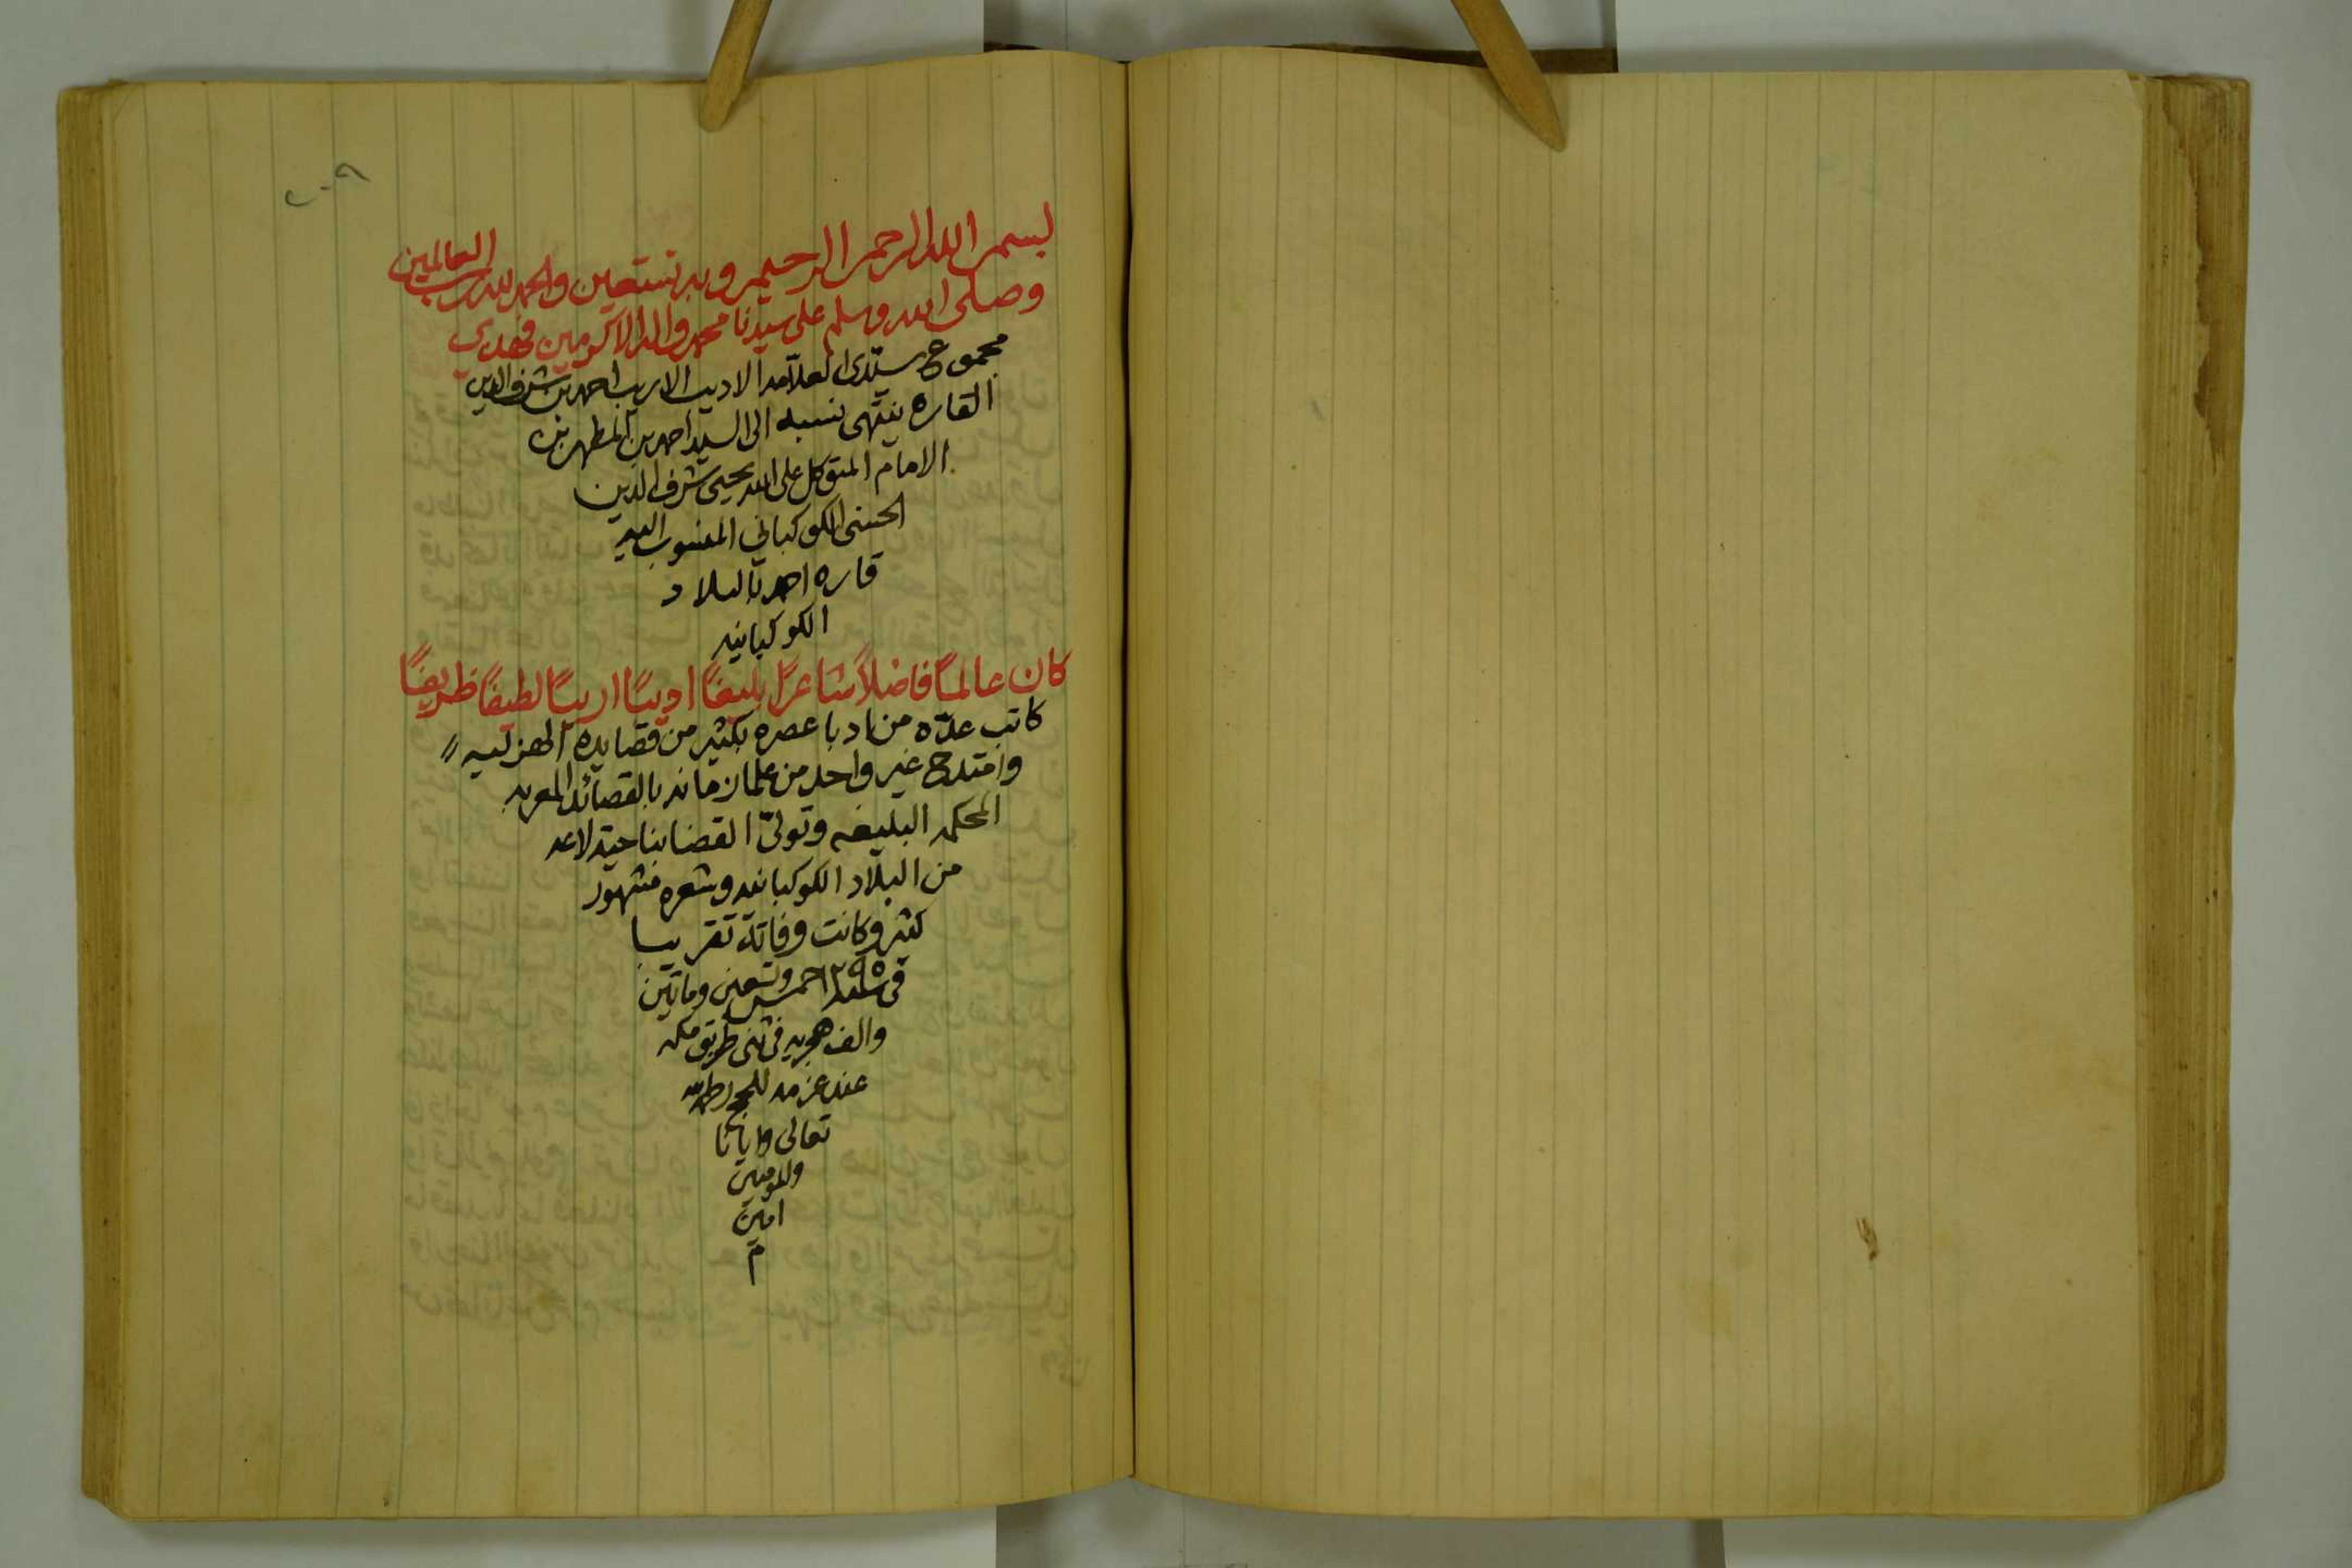 بسم الله الرحمن الرحيم وبه نستعين والحمد لله رب العالمين
وصلى الله وسلم على سيدنا محمد واله الاكرمين فهذه
مجموع سيدي العلامه الاديب الاريب احمد بن شرف الدين
القاره ينتهى نسبه الى السيد احمد بن المطهر بن
الامام المتوكل على الله يحيى شرف الدين
الحسني الكوكباني المنسوب اليه
قاره احمد بالبلاد
الكوكبانيه
كان عالماً فاضلاً شاعراً بليغاً اديباً اريباً لطيفاً ظريفاً
كاتب عدّه من ادبا عصره بكثير من قصايده الهزليه
وامتدح غير واحد من علما زمانه بالقصائد المعربه
المحكمه البليغه وتولىّ القضا بناحية لاعه
من البلاد الكوكبانيه وشعره مشهور
كثير وكانت وفاته تقريبا
في سنة ١٢٩٥ خمس وتسعين وماتين
والف هجريه في ثنى طريق مكه
عند عزمه للحج رحمه الله
تعالى وايانا
والمومنين
امين
م